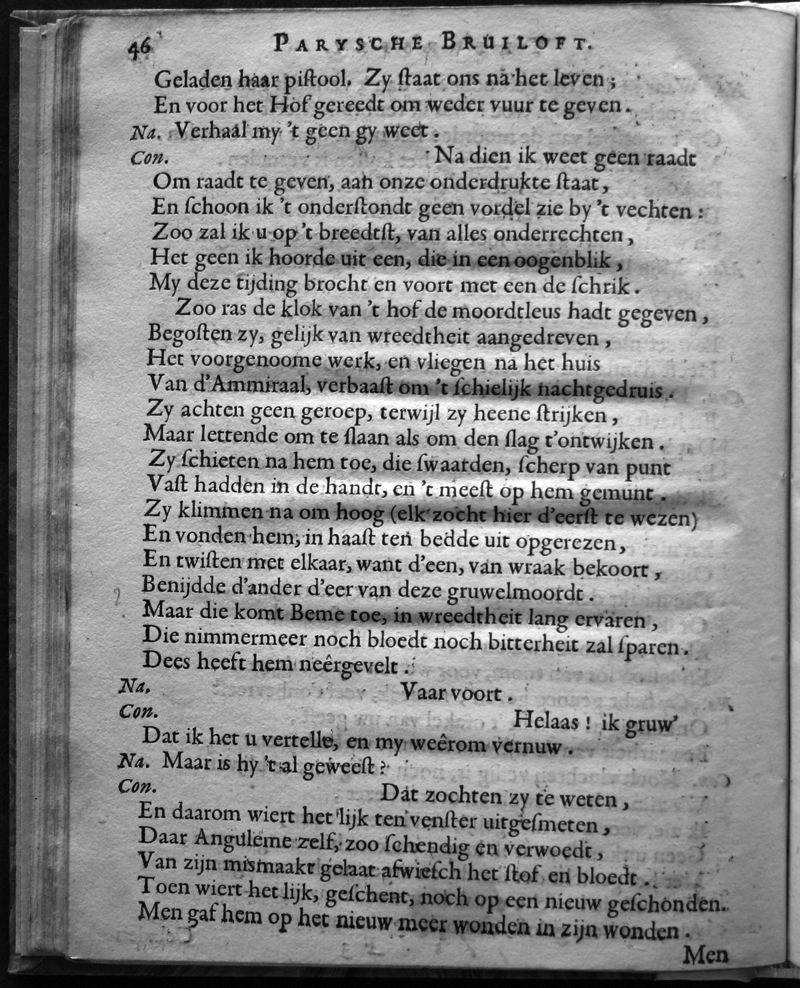 46 PARYSCHE BRUILOFT.
Geladen haar piſtool. Zy ſtaat ons na het leven ;
En voor het Hof gereedt om weder vuur te geven.
Na. Verhaal my 't geen gy weet.
Con. Na dien ik weet geen raadt
Om raadt te geven, aan onze onderdrukte ſtaat,
En ſchoon ik 't onderſtondt geen vordel zie by 't vechten :
Zoo zal ik u op 't breedtſt, van alles onderrechten,
Het geen ik hoorde uit een, die in een oogenblik,
My deze tijding brocht en voort met een de ſchrik.
Zoo ras de klok van 't hof de moordtleus hadt gegeven,
Begoſten zy, gelijk van wreedtheit aangedreven,
Het voorgenoome werk, en vliegen na het huis
Van d'Ammiraal, verbaaſt om 't ſchielijk nachtgedruis.
Zy achten geen geroep, terwijl zy heene ſtrijken,
Maar lettende om te ſlaan als om den ſlag t'ontwijken.
Zy ſchieten na hem toe, die ſwaarden, ſcherp van punt
Vaſt hadden in de handt, en 't meeſt op hem gemunt.
Zy klimmen na om hoog (elk zocht hier d'eerſt te wezen)
En vonden hem, in haaſt ten bedde uit opgerezen,
En twiſten met elkaar, want d'een, van wraak bekoort,
Benijdde d'ander d'eer van deze gruwelmoordt.
Maar die komt Beme toe, in wreedtheit lang ervaren,
Die nimmermeer noch bloedt noch bitterheit zal ſparen.
Dees heeft hem neêrgevelt.
Na. Vaar voort.
Con. Helaas ! ik gruw'
Dat ik het u vertelle, en my weêrom vernuw.
Na. Maar is hy 't al geweeſt ?
Con. Dat zochten zy te weten,
En daarom wiert het lijk ten venſter uitgeſmeten,
Daar Anguleme zelf, zoo ſchendig en verwoedt,
Van zijn mismaakt gelaat afwieſch het ſtof en bloedt.
Toen wiert het lijk, geſchent, noch op een nieuw geſchonden.
Men gaf hem op het nieuw meer wonden in zijn wonden.
Men